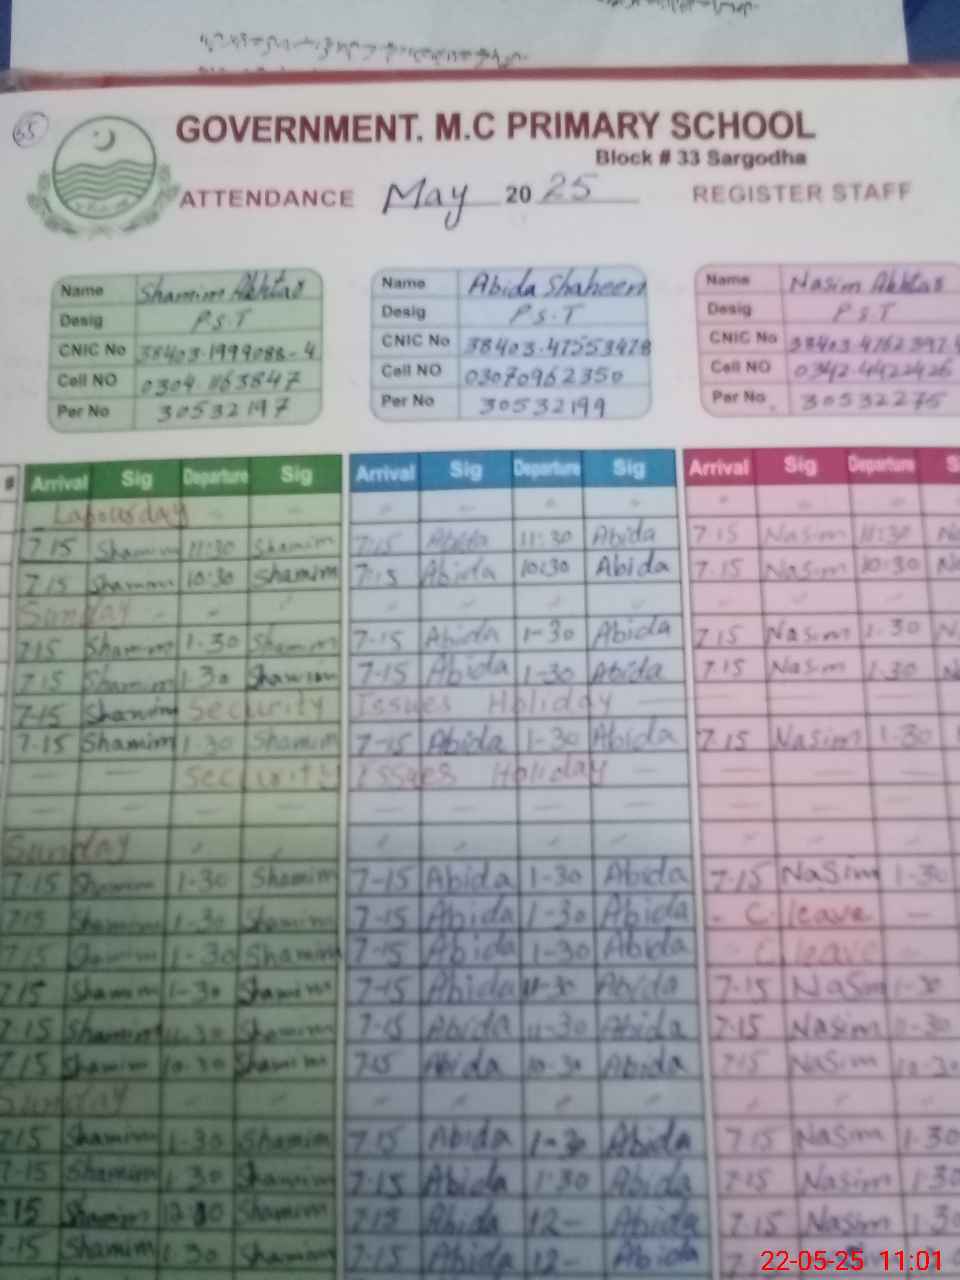 65
GOVERNMENT. M.C PRIMARY SCHOOL
Block # 33 Sargodha
ATTENDANCE May 2025 REGISTER STAFF
Name Shamim Akhtar Name Abida Shaheen Name Nasim Akhtar
Desig P.S.T Desig P.S.T Desig P.S.T
CNIC No 38403-1999088-4 CNIC No 38403-47553478 CNIC No
Cell NO 0304-1163847 Cell NO 03070962350 Cell NO 0342-4422426
Per No 30532197 Per No 30532199 Per No. 30532275
# Arrival Sig Departure Sig Arrival Sig Departure Sig Arrival Sig Departure S
Labourday
7 15 Shamim 11:30 Shamim 7:15 Abida 11:30 Abida 7 15 Nasim 11:30 Na
7 15 Shamim 10:30 Shamim 7:15 Abida 10:30 Abida 7.15 Nasim 10-30 Na
Sunday
7 15 Shamim 1-30 Shamim 7-15 Abida 1-30 Abida 7 15 Nasim 1-30 N
7 15 Shamim 1-30 Shamim 7-15 Abida 1-30 Abida 7 15 Nasim 1-30 Na
7-15 Shamim Security Issues Holiday
7-15 Shamim 1-30 Shamim 7-15 Abida 1-30 Abida 7 15 Nasim 1-30
Security Issues Holiday
Sunday
7-15 Shamim 1-30 Shamim 7-15 Abida 1-30 Abida 7-15 NaSim 1-30
7 15 Shamim 1-30 Shamim 7-15 Abida 1-30 Abida C. leave
7 15 Shamim 1-30 Shamim 7-15 Abida 1-30 Abida C leave
7 15 Shamim 1-30 Shamim 7-15 Abida Abida 7-15 NaSim 1-30
7.15 Shamim 11-30 Shamim 7-15 Abida 11-30 Abida 7-15 Nasim 11-30
7 15 Shamim 10-30 Shamim 7-15 Abida 10-30 Abida 7-15 Nasim 10-30
Sunday
7 15 Shamim 1-30 Shamim 7-15 Abida 1-30 Abida 7-15 NaSim 1-30
7-15 Shamim 1-30 Shamim 7-15 Abida 1-30 Abida 7-15 Nasim 1-30
7 15 Shamim Shamim 7-15 Abida 12- Abida 7-15 Nasim 1-30
7-15 Shamim 1-30 Shamim 7-15 Abida 12- Abida
22-05-25 11:01